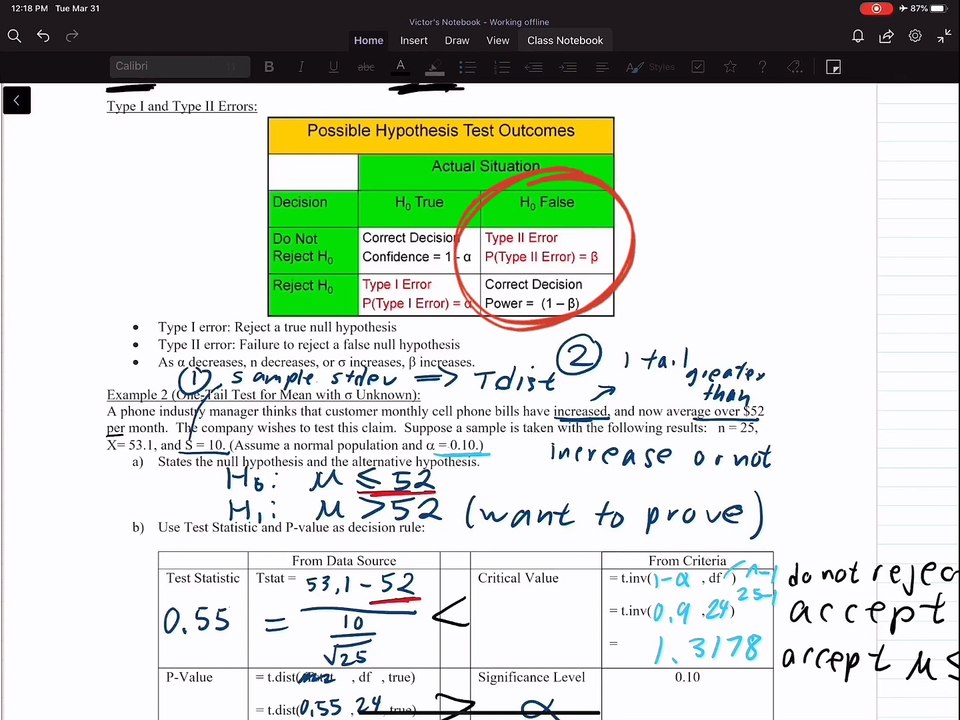 12:18 PM Tue Mar 31
87%
Victor's Notebook - Working offline
Home Insert Draw View Class Notebook
Calibri B I U abc A Styles ?
Type I and Type II Errors:
Possible Hypothesis Test Outcomes
Actual Situation
Decision H0 True H0 False
Do Not Reject H0
Correct Decision
Confidence = 1 - α
Type II Error
P(Type II Error) = β
Reject H0
Type I Error
P(Type I Error) = α
Correct Decision
Power = (1 – β)
• Type I error: Reject a true null hypothesis
• Type II error: Failure to reject a false null hypothesis
• As α decreases, n decreases, or σ increases, β increases.
① sample stdev => Tdist ② 1 tail
greater than
Example 2 (One-Tail Test for Mean with σ Unknown):
A phone industry manager thinks that customer monthly cell phone bills have increased, and now average over $52
per month. The company wishes to test this claim. Suppose a sample is taken with the following results: n = 25,
X= 53.1, and S = 10. (Assume a normal population and α = 0.10.)
increase or not
a) States the null hypothesis and the alternative hypothesis.
H0: μ ≤ 52
H1: μ > 52 (want to prove)
b) Use Test Statistic and P-value as decision rule:
From Data Source From Criteria
Test Statistic
0.55
Tstat = 53,1 - 52
= 10
√25
<
Critical Value
= t.inv(1-α , df ) n-1
25-1
= t.inv(0.9 ,24)
= 1.3178
do not rejec
accept
accept μ≤
P-Value = t.dist( , df , true) Significance Level 0.10
= t.dist(0.55 , 24, true) > α